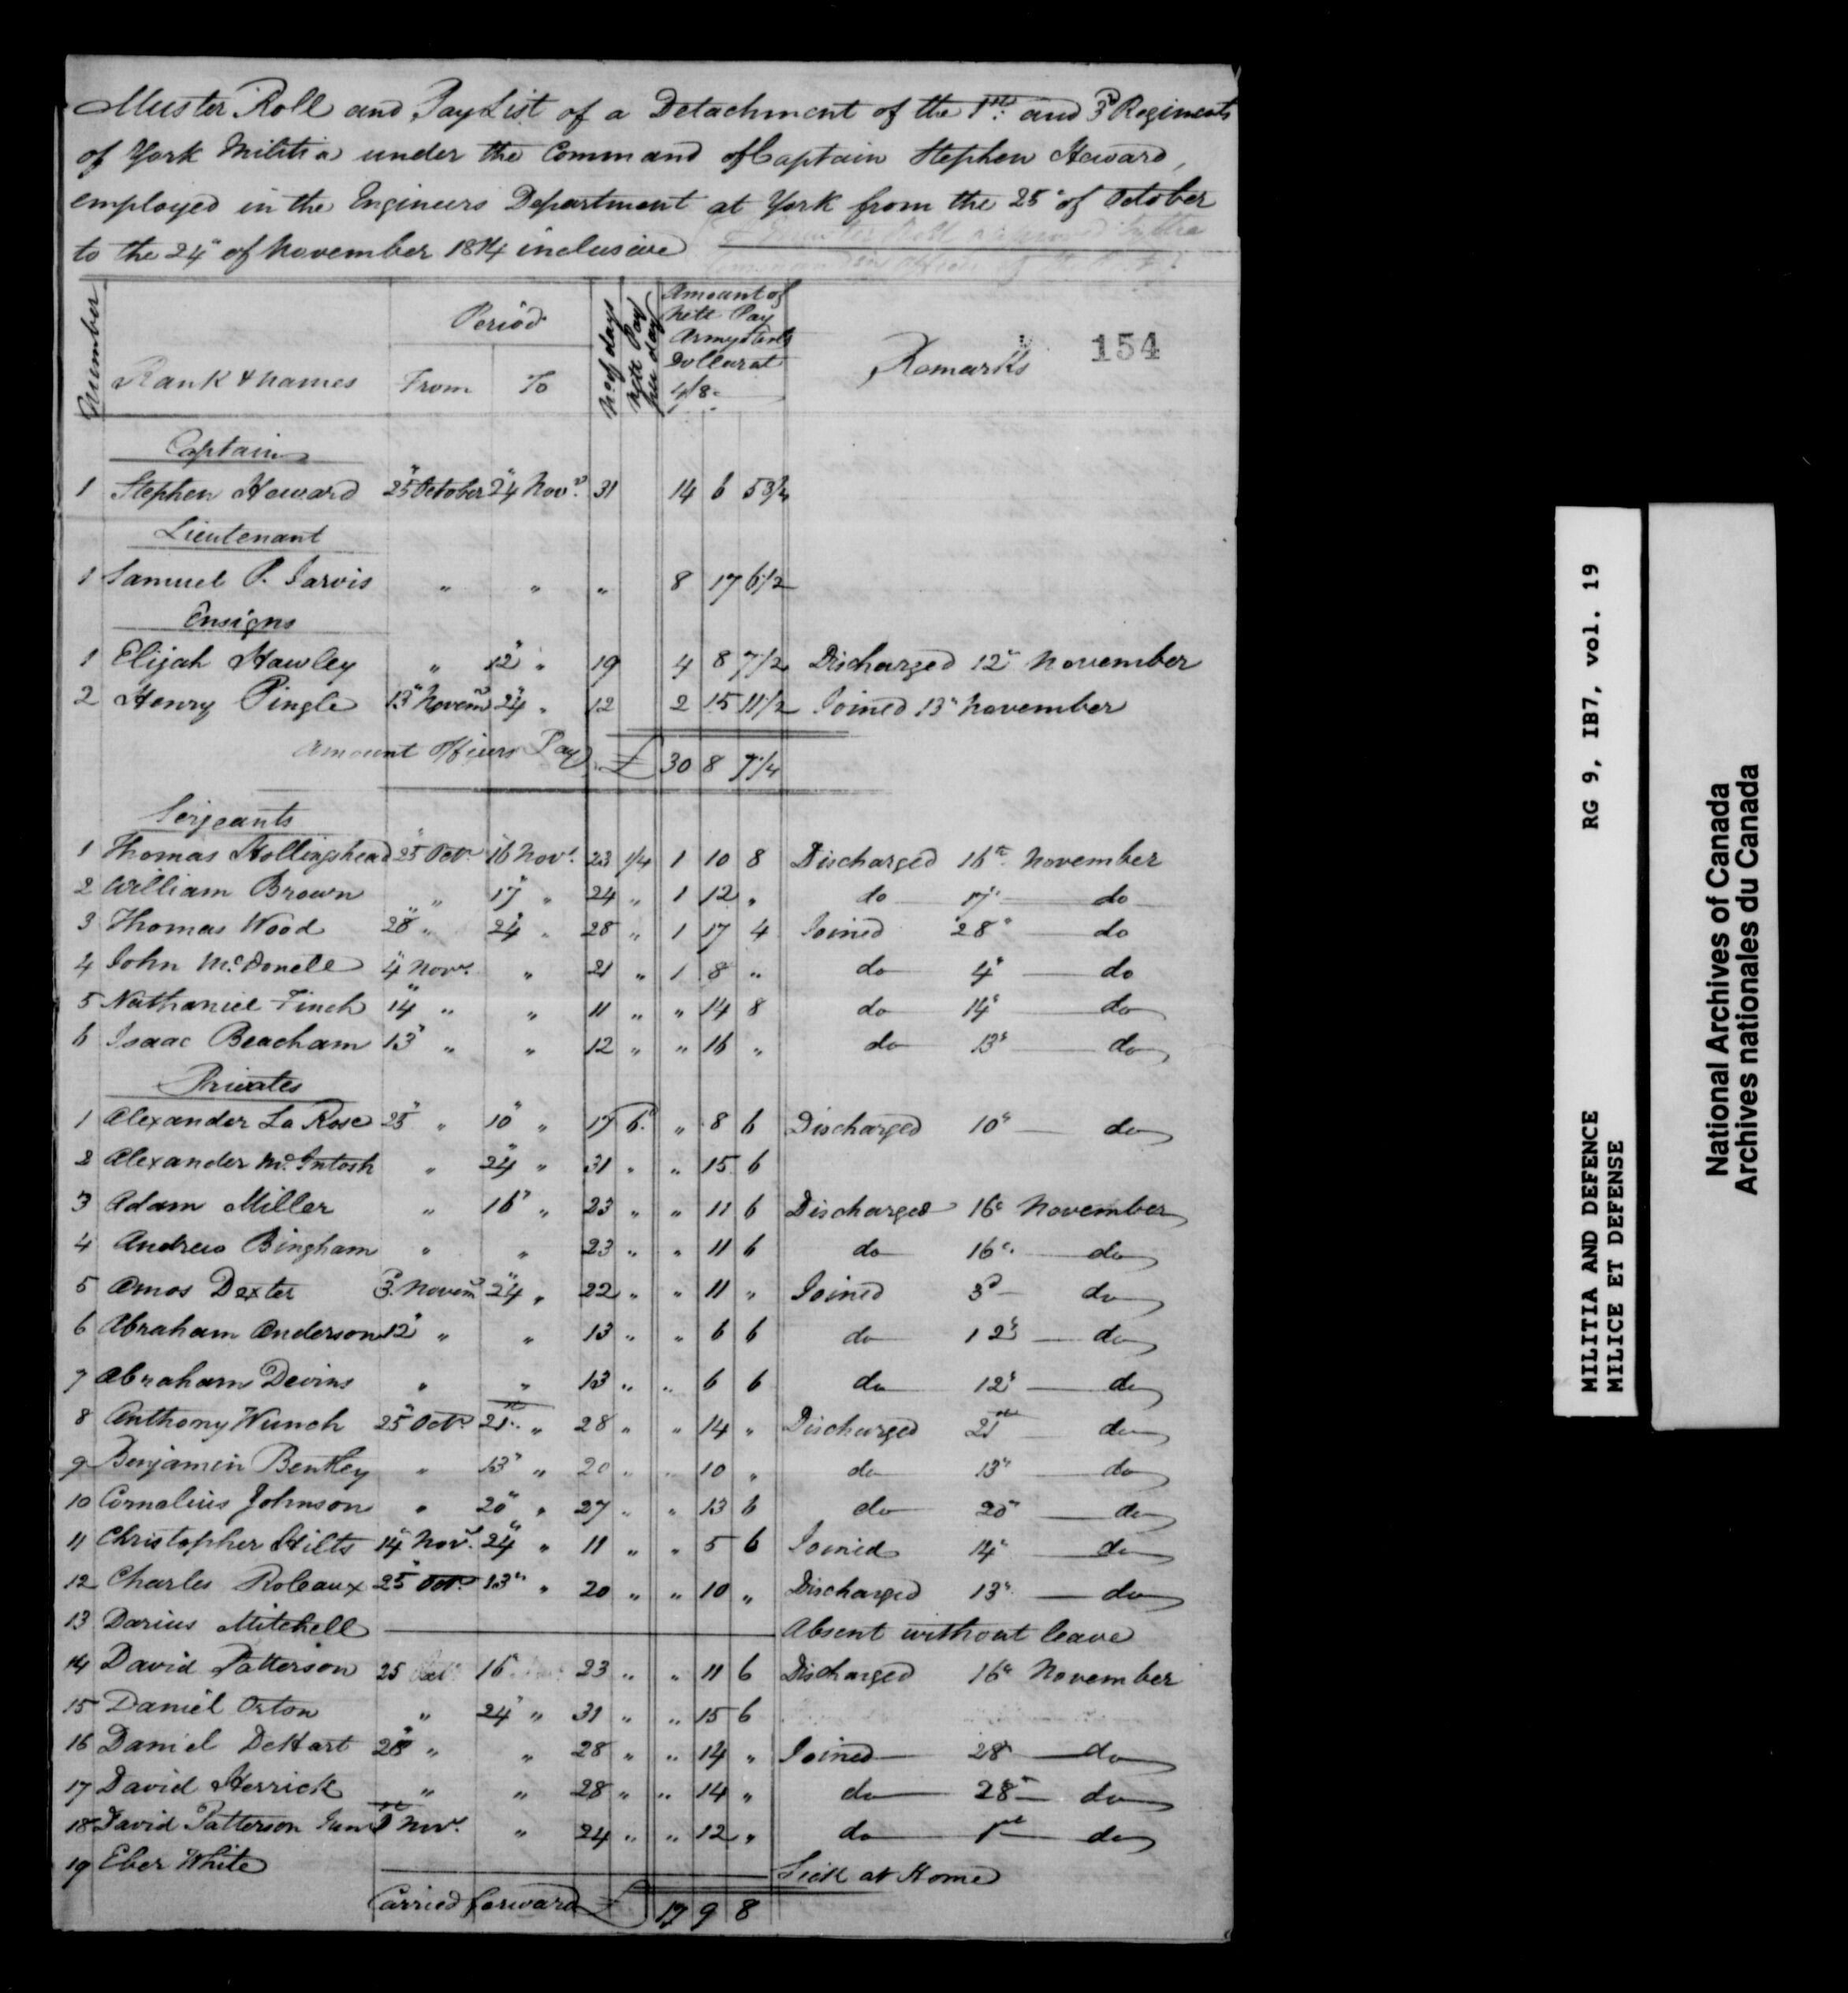 Muster Roll and Pay List of a Detachment of the 1st and 3d Regiments
of York Militia under the Command of Captain Stephen Howard,
employed in the Engineers Department at York from the 25" of October
to the 24" of November 1814 inclusive
Number Rank & names Period From To No. of days Nett Pay per day Amount of Nett Pay Army Dollar at 4/8 Remarks 154
Captain
1 Stephen Howard 25" October 24" Novr. 31 14 6 5 3/4
Lieutenant
1 Samuel P. Jarvis " " " 8 17 6 1/2
Ensigns
1 Elijah Hawley " 12" " 19 4 8 7 1/2 Discharged 12" November
2 Henry Pingle 13" Novemr 24" " 12 2 15 11 1/2 Joined 13" November
Amount Officers Pay £ 30 8 7 1/4
Serjeants
1 Thomas Hollingshead 25" Octr. 16" Novr. 23 1/4 1 10 8 Discharged 16th November
2 William Brown " " 17" " 24 " 1 12 " do 17" do
3 Thomas Wood 28" " 24" " 28 " 1 17 4 Joined 28" do
4 John McDonell 4" Novr. " 21 " 1 8 " do 4" do
5 Nathaniel Finch 14" " " 11 " " 14 8 do 14" do
6 Isaac Beacham 13" " " 12 " " 16 " do 13" do
Privates
1 Alexander La Rose 25" " 10" " 17 6d. " 8 6 Discharged 10" do
2 Alexander McIntosh " 24" " 31 " " 15 6
3 Adam Miller " 16" " 23 " " 11 6 Discharged 16" November
4 Andrew Bingham " " 23 " " 11 6 do 16" do
5 Amos Dexter 3d. Novemr 24" " 22 " " 11 " Joined 3d do
6 Abraham Anderson 12" " " 13 " " 6 6 do 12" do
7 Abraham Devins " " 13 " " 6 6 do 12" do
8 Anthony Wunch 25" Octr. 21st " 28 " " 14 " Discharged 21st do
9 Benjamin Bentley " 13" " 20 " " 10 " do 13" do
10 Cornelius Johnson " 20" " 27 " " 13 6 do 20" do
11 Christopher Hilts 14" Novr. 24" " 11 " " 5 6 Joined 14" do
12 Charles Robeaux 25" Octr. 13" " 20 " " 10 " Discharged 13" do
13 Darius Mitchell Absent without leave
14 David Patterson 25 Octr. 16" 23 " " 11 6 Discharged 16" November
15 Daniel Orton " 24" " 31 " " 15 6
16 Daniel DeHart 28" " " 28 " " 14 " Joined 28" do
17 David Herrick " " 28 " " 14 " do 28" do
18 David Patterson Junr 1st Novr. " 24 " " 12 " do 1st do
19 Eber White Sick at Home
Carried forward £ 17 9 8
MILITIA AND DEFENCE RG 9, IB7, vol. 19
MILICE ET DEFENSE
National Archives of Canada
Archives nationales du Canada